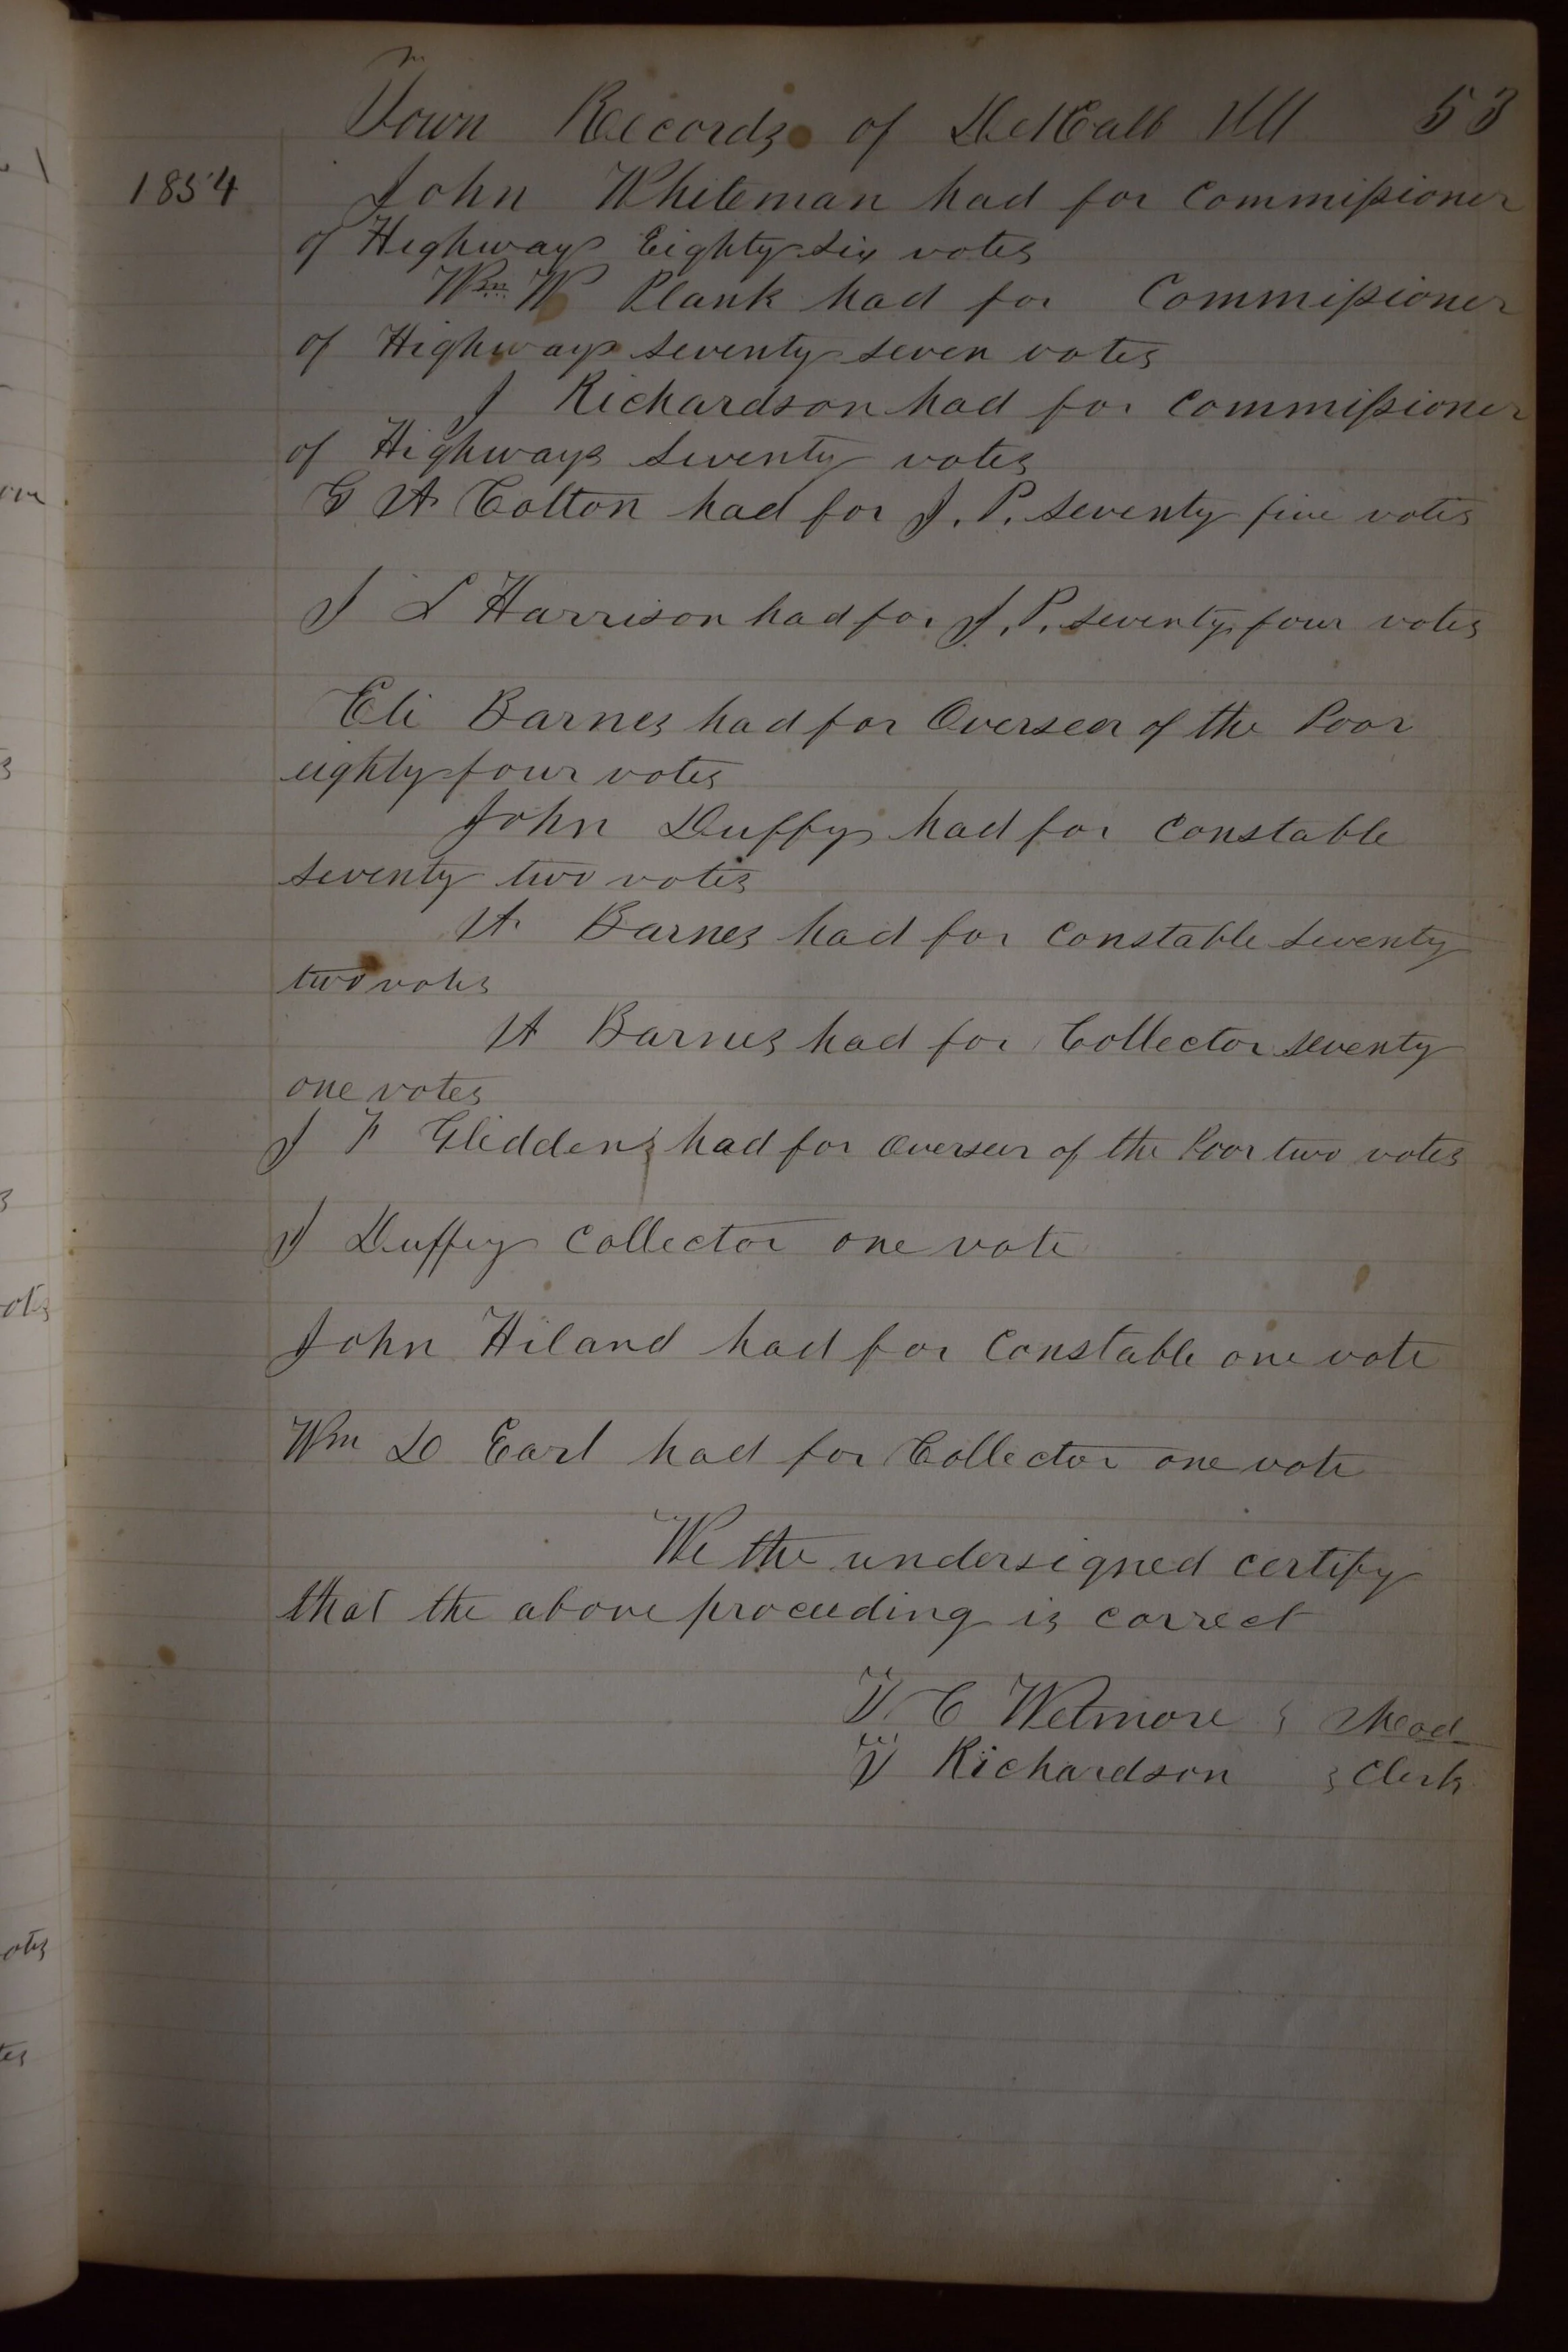 Town Records of DeKalb Ill 53
1854 John Whiteman had for Commissioner
of Highways Eighty six votes
Wm W Plank had for Commissioner
of Highways seventy seven votes
J Richardson had for Commissioner
of Highways seventy votes
G A Colton had for J. P. seventy five votes
J L Harrison had for J. P. seventy four votes
Eli Barnes had for Overseer of the Poor
eighty four votes
John Duffy had for Constable
seventy two votes
A Barnes had for Constable seventy
two votes
A Barnes had for Collector seventy
one votes
J F Glidden had for Overseer of the Poor two votes
J Duffey Collector one vote
John Hiland had for Constable one vote
Wm D Earl had for Collector one vote
We the undersigned certify
that the above proceeding is correct
C Wetmore Mod
Richardson Clerk